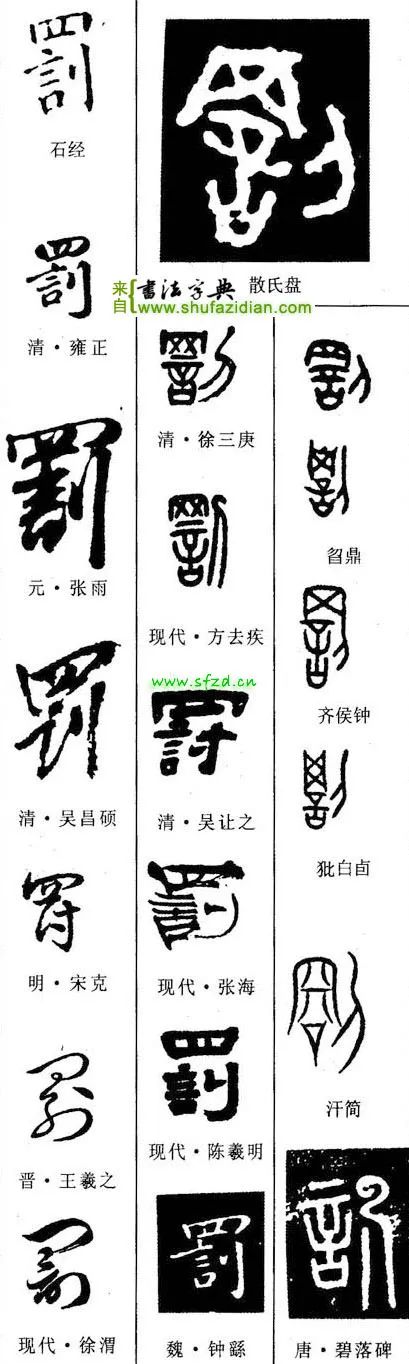 罰
石经
罰
清·雍正
罰
元·张雨
罰
清·吴昌硕
罸
明·宋克
罰
晋·王羲之
罰
现代·徐渭
罰
散氏盘
来自
书法字典
www.shufazidian.com
罰
清·徐三庚
罰
现代·方去疾
www.sfzd.cn
罸
清·吴让之
罰
现代·张海
罰
现代·陈羲明
罰
魏·钟繇
罰
罰
曶鼎
罰
齐侯钟
罰
批白卣
罰
汗简
罰
唐·碧落碑